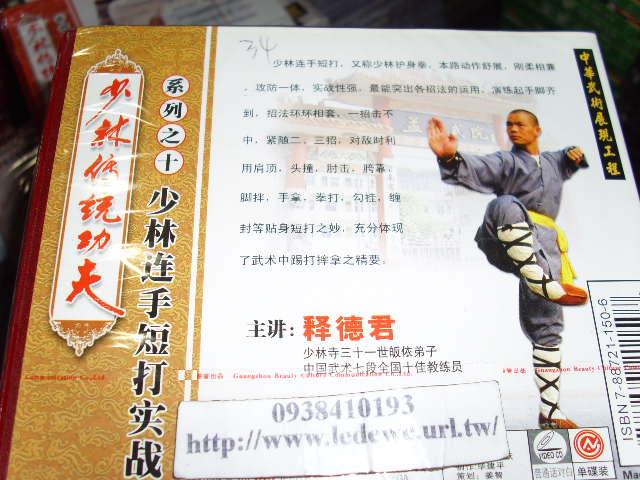 34
少林传统功夫
系列之十
少林连手短打实战
少林连手短打，又称少林护身拳，本路动作舒展，刚柔相兼
，攻防一体，实战性强，最能突出各招法的运用，演练起手脚齐
到，招法环环相套，一招击不
中，紧随二，三招，对敌时利
用肩顶，头撞，肘击，胯靠，
脚拌，手拿，拳打，勾挂，缠
封等贴身短打之妙，充分体现
了武术中踢打摔拿之精要。
主讲：释德君
少林寺三十一世皈依弟子
中国武术七段全国十佳教练员
中華武術展現工程
Guangzhou Beauty Culture Communication Co.,Ltd.
0938410193
http://www.ledewe.url.tw/
ISBN 7-88721-150-6
VIDEO CD
普通话对白
单碟装